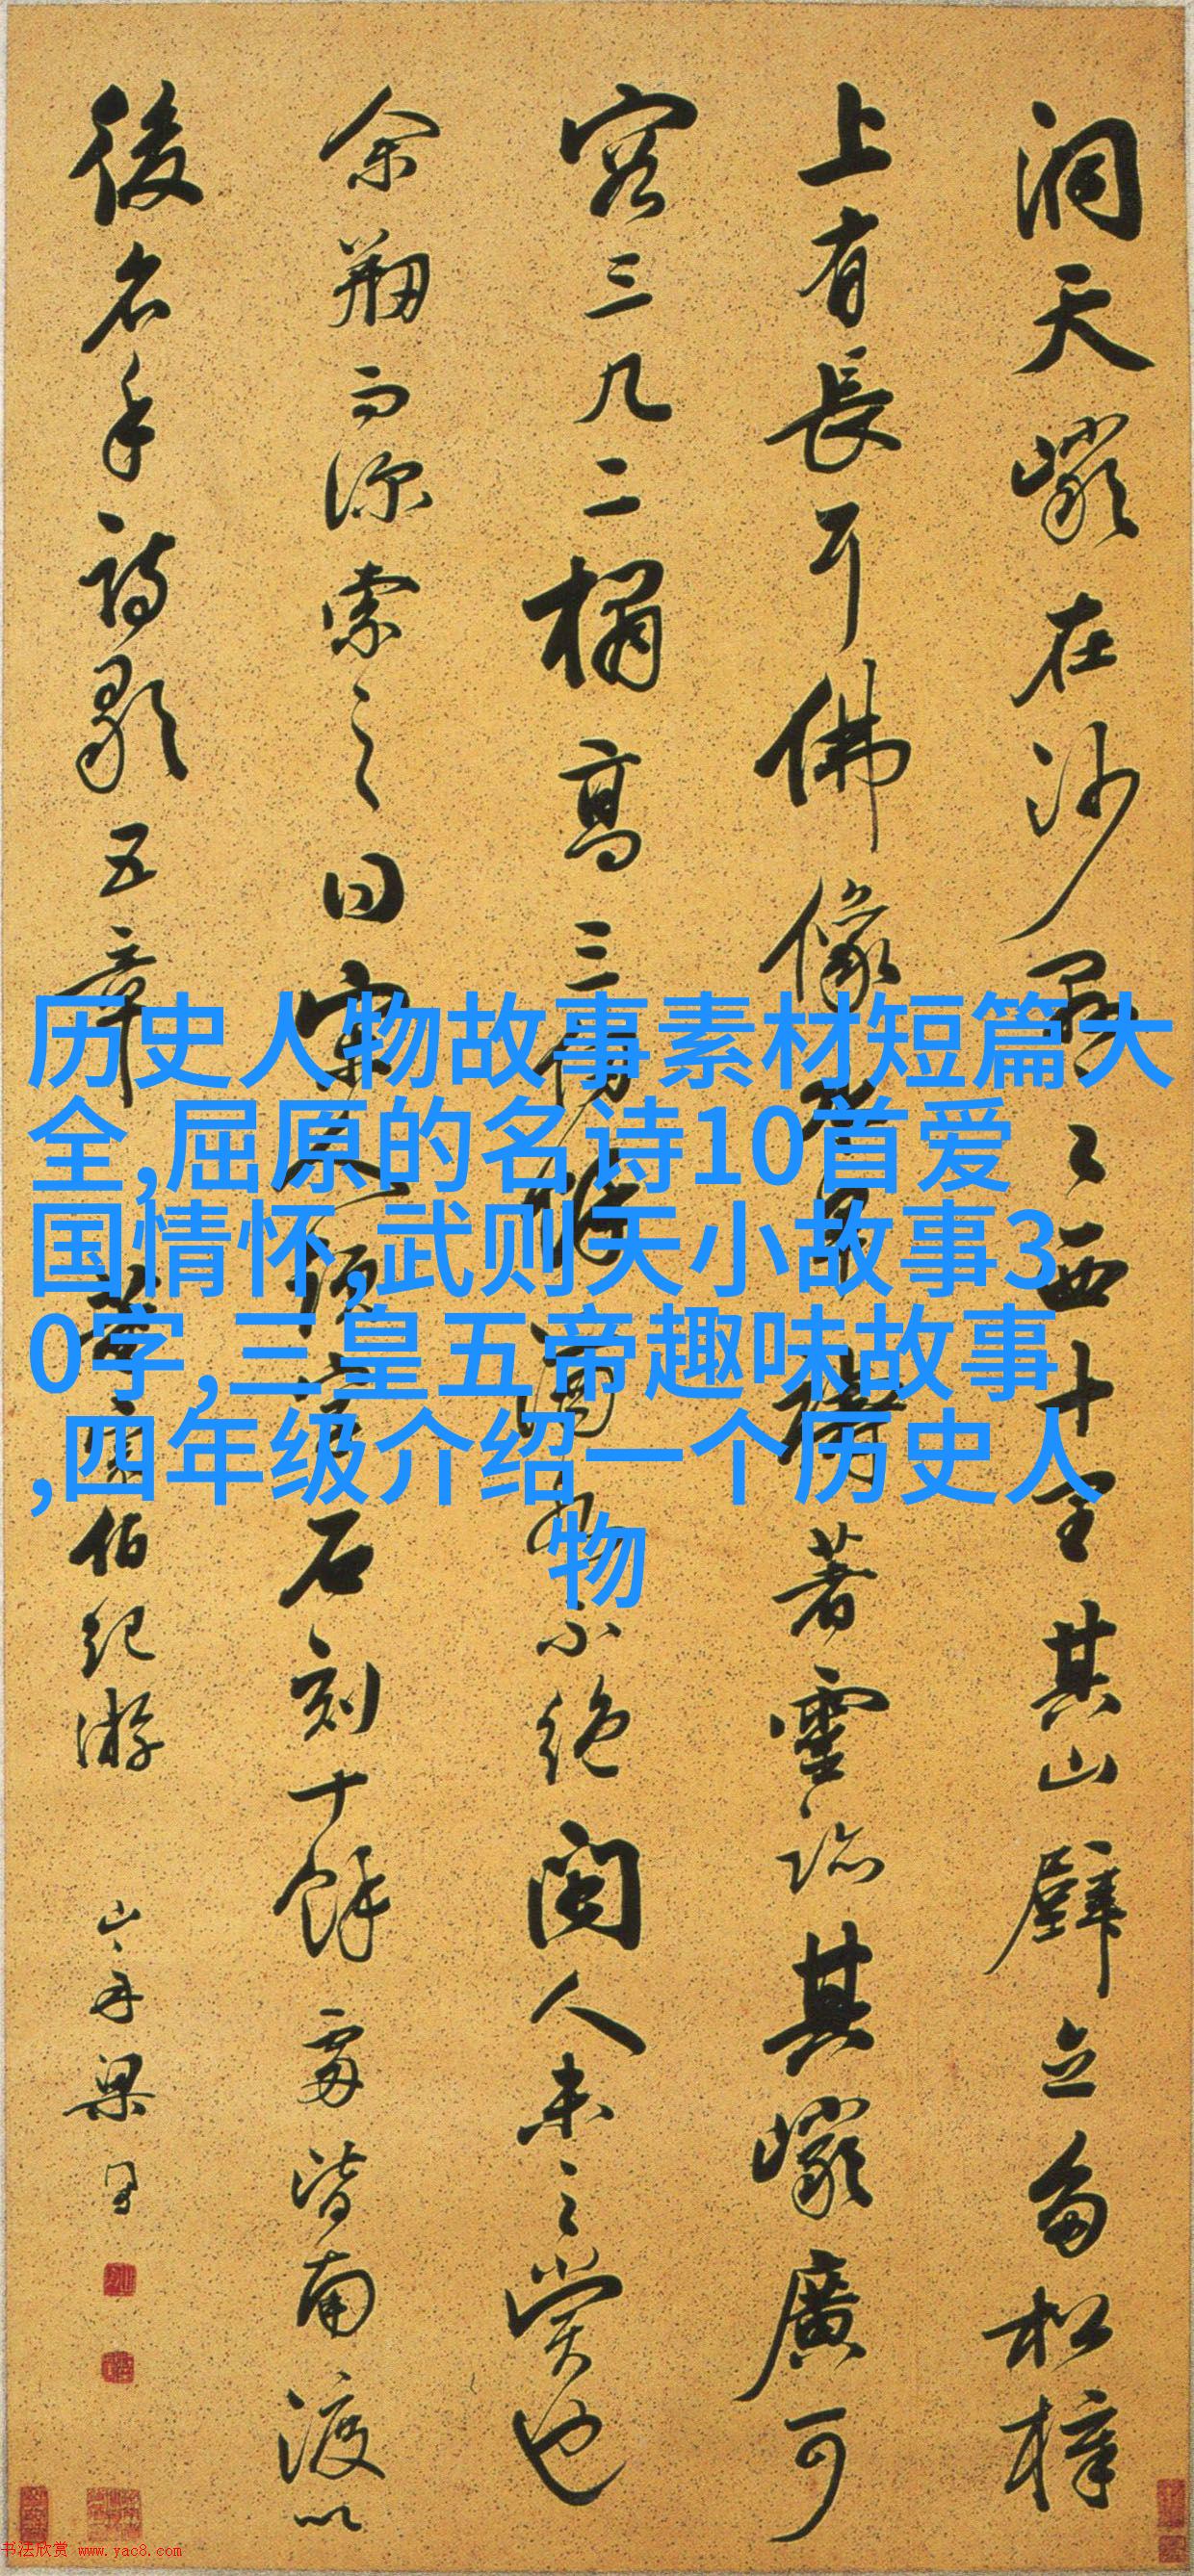 洞天巖在沙縣之西十里其山壁立多松樟
上有長耳佛像禱著靈跡其巖廣可
容三几二榻高三仞餘滴水不絕閩人未之賞也
余而深索之曰宋人題石刻十餘處皆南渡以
後名手詩歌五章伯紀游
山舟梁同
历史人物故事素材短篇大
全,屈原的名诗10首爱
国情怀,武则天小故事3
0字,三皇五帝趣味故事
,四年级介绍一个历史人
物
书法欣赏 www.yac8.com